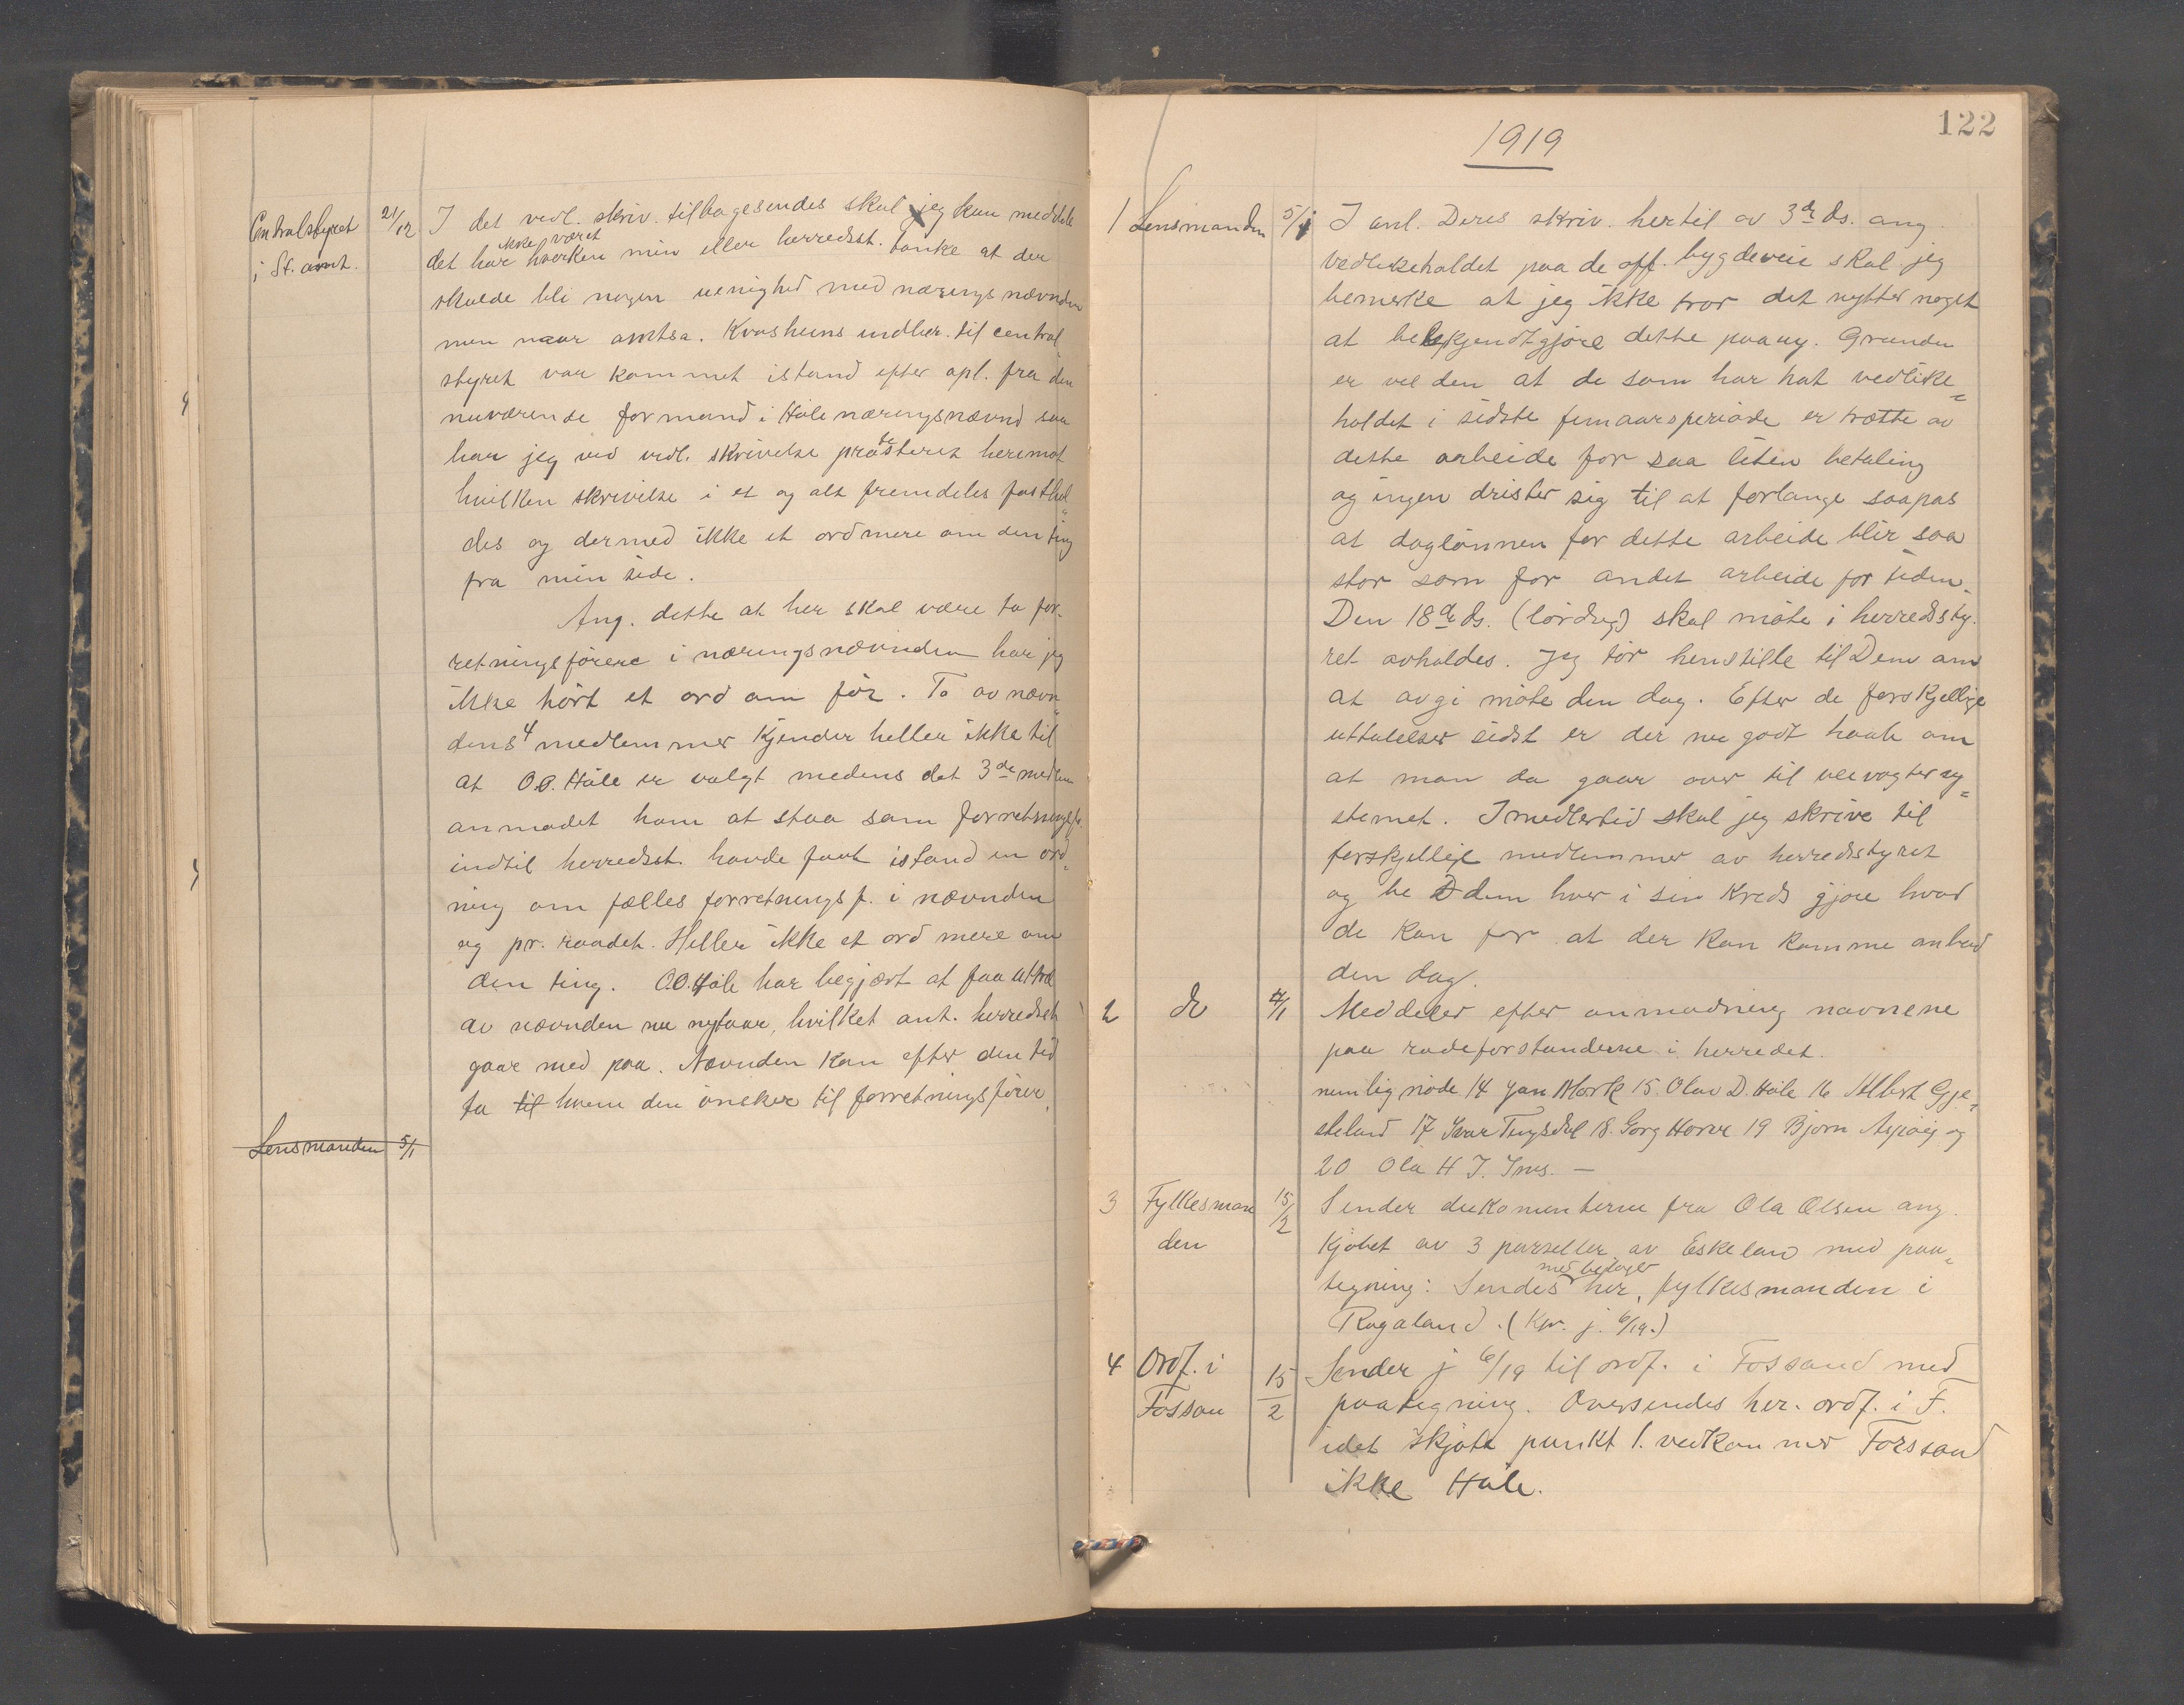 Centralstyret
i St. amt.
21/12
I det vedl. skriv. tilbagesendes skal jeg kun meddele
ikke været
det har hverken min eller herredsst. tanke at der
skulde bli nogen uenighed med næringsnævnden
men naar amtsa. Kvasheims indber. til central
styret var kommet istand efter opl. fra den
nuværende formand i Høle næringsnævnd saa
har jeg ved vedl. skrivelse protesteret herimot
hvilken skrivelse i et og alt fremdeles fasthol
des og dermed ikke et ord mere om den ting
fra min side.
Ang. dette at her skal være to for-
retningsförere i næringsnævnden har jeg
ikke hört et ord om för. To av nævn
dens 4 medlemmer kjender heller ikke til
at O.O. Höle er valgt medens det 3de medlem
anmodet ham at staa som forretningsf.
indtil herredsst. havde faat istand en ord-
ning om fælles forretningsf. i nævnden
og pr. raadet. Heller ikke et ord mere om
den ting. O.O. Höle har begjært at faa uttræ
av nævnden nu nytaar, hvilket ant. herredsst.
gaar med paa. Nævnden kan efter den tid
ta til hvem den önsker til forretningsförer.
Lensmanden 5/1
122
1919
1 Lensmanden 5/1 I anl. Deres skriv. hertil av 3de ds. ang.
vedlikeholdet paa de off. bygdeveie skal jeg
bemerke at jeg ikke tror det nytter noget
at bekjendtgjöre dette paany. Grunden
er vel den at de som har hat vedlike=
holdet i sidste femaarsperiode er trætte av
dette arbeide for saa liten betaling
og ingen drister sig til at forlange saapas
at daglönnen for dette arbeide blir saa
stor som for andet arbeide for tiden.
Den 18de ds. (lördag) skal möte i herredssty-
ret avholdes. Jeg tör henstille til Dem om
at avgi möte den dag. Efter de forskjellige
uttalelser sidst er der nu godt haab om
at man da gaar over til veivogtersy=
stemet. Imedlertid skal jeg skrive til
forskjellige medlemmer av herredsstyret
og be dem hver i sin kreds gjöre hvad
de kan for at der kan komme anbud
den dag.
2 do 7/1 Meddeler efter anmodning navnene
paa rodeforstanderne i herredet.
nemlig rode 14 Jan Mork 15. Olav D. Höle 16 Albert Gje=
steland 17 Ivar Tengsdal 18. Gorg 19 Björn og
20 Ola H J. Ims. —
3 Fylkesman 15/2 Sender dukomenterne fra Ola Olsen ang.
den kjöbet av 3 parseller av Eskeland med paa=
med bedager
tegning: Sendes her. fylkesmanden i
Rogaland. (Kpr. j. 6/19.)
4 Ordf. i 15/2 Sender j 6/19 til ordf. i Fossand med
Fossan paategning. Oversendes her. ordf. i F.
idet skjöte punkt 1. vedkommer Forssand
ikke Höle.